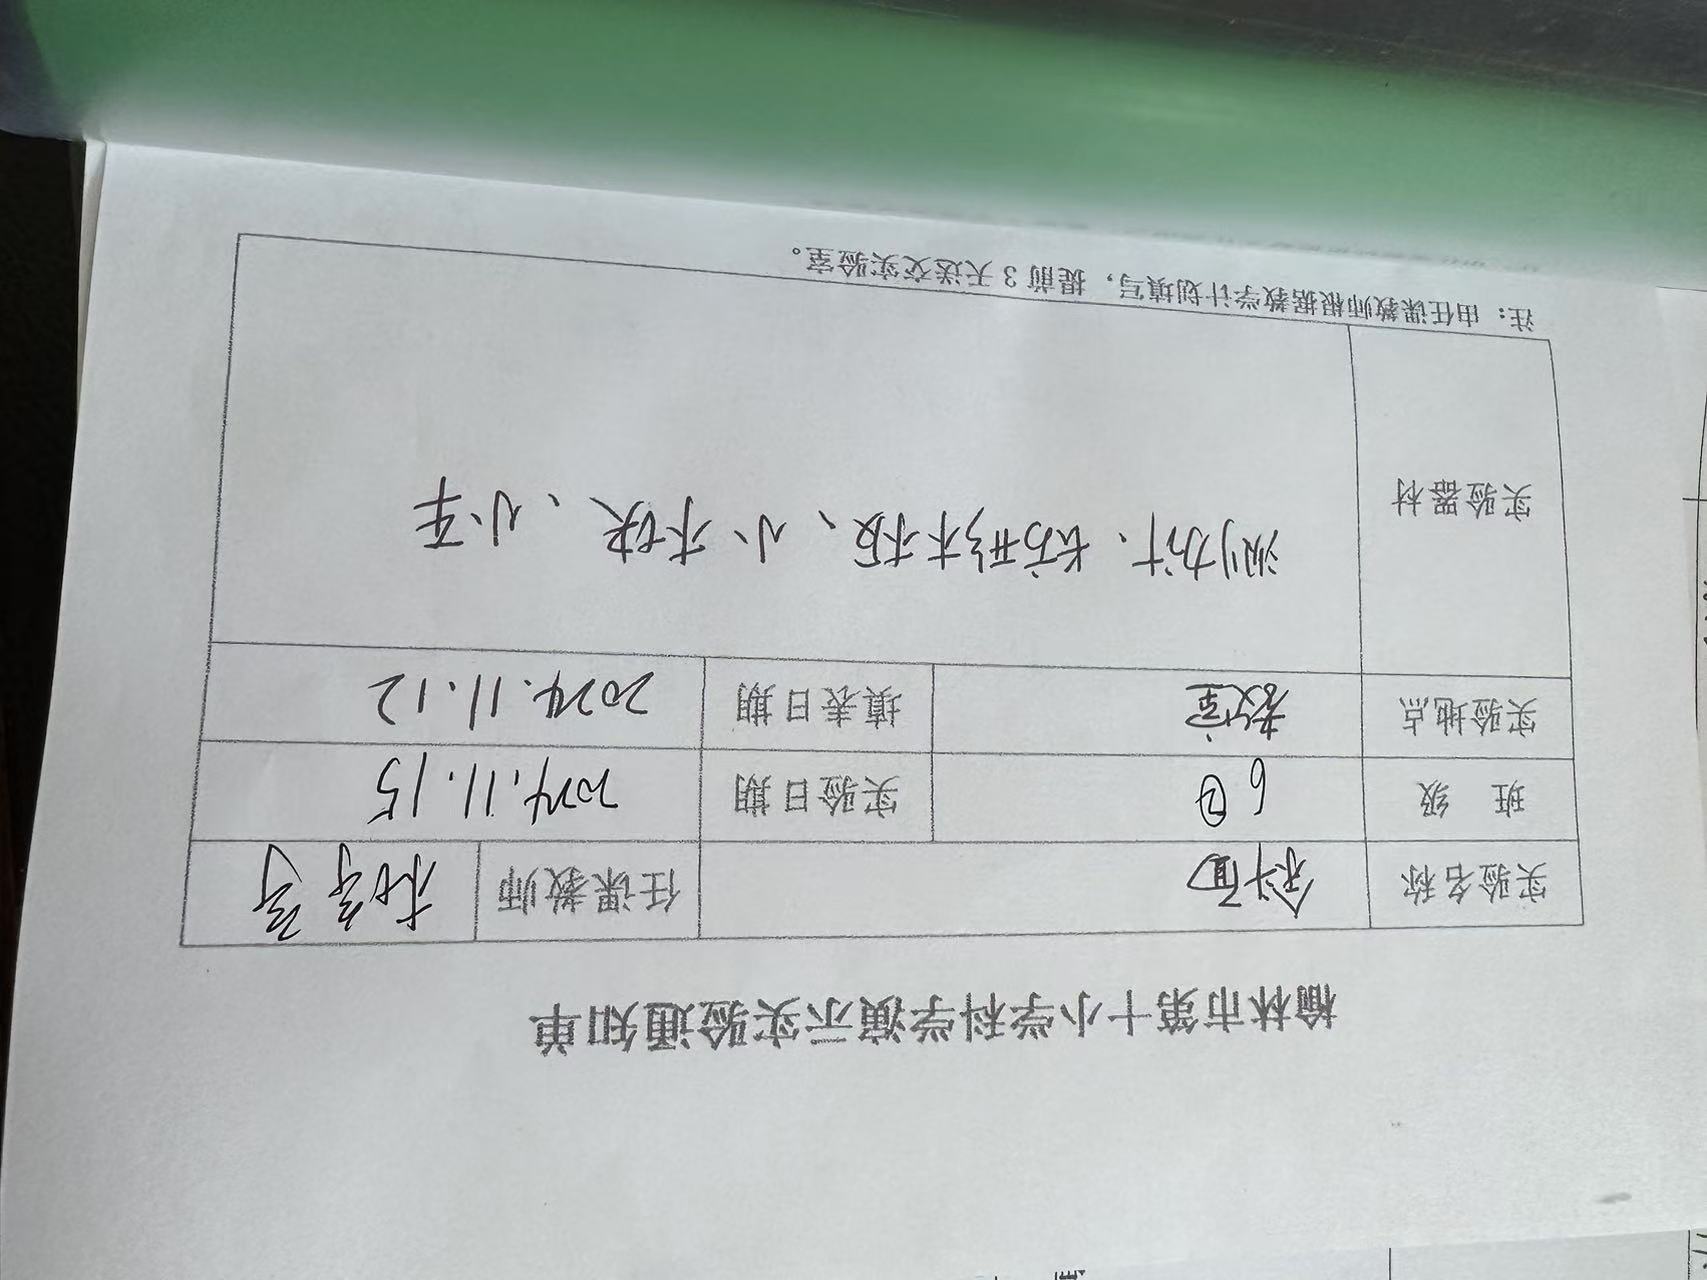 榆林市第十小学科学演示实验通知单
实验名称 斜面 任课教师
班 级 6② 实验日期 2024.11.15
实验地点 教室 填表日期 2024.11.12
实验器材 测力计、长方形木板、小木块、小车
注：由任课教师根据教学计划填写，提前 3 天送交实验室。